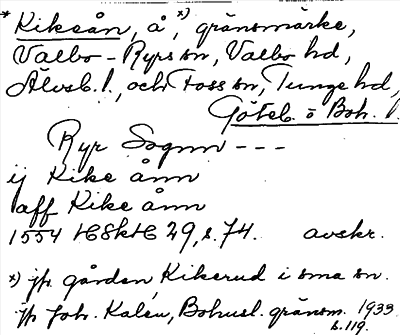 * Kikeån, å, x) gränsmärke,
Valbo-Ryrs sn, Valbo hd,
Älvsb. l., och Foss sn, Tunge hd,
Göteb. o Boh. l.
Ryr Sognn ---
ij Kike ånn
aff Kike ånn
1554 HSkH 29, s. 74. avskr.
x) jfr. gården Kikerud i sma sn.
jfr Joh. Kalén, Bohusl. gränsm. 1933
s. 119.